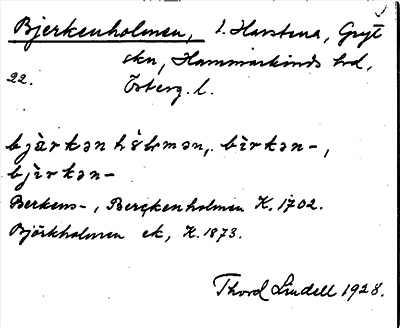 Bjerkenholmen, l. Harstena, Gryt
skn, Hammarkinds hd,
22. Österg. l.
bjàrkənhòlmən, bìrkən-,
bjìrkən-
Berkens-, Berckenholmen K. 1702.
Björkholmen ek, K. 1873.
Thord Lindell 1928.